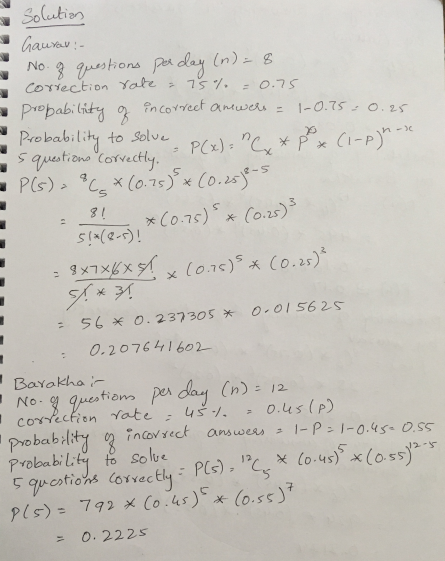 Solution
Gaurav:-
No. of questions per day (n) = 8
Correction rate = 75% = 0.75
Probability of incorrect answers = 1-0.75 = 0.25
Probability to solve
5 questions correctly. = P(x) = ⁿCₓ * pˣ * (1-P)ⁿ⁻ˣ
P(5) = ⁸C₅ * (0.75)⁵ * (0.25)⁸⁻⁵
= 8! / 5!*(8-5)! * (0.75)⁵ * (0.25)³
= 8×7×6×5! / 5! * 3! × (0.75)⁵ * (0.25)³
= 56 * 0.237305 * 0.015625
= 0.207641602
Barakha:-
No. of questions per day (n) = 12
correction rate = 45% = 0.45 (P)
probability of incorrect answers = 1-P = 1-0.45 = 0.55
probability to solve
5 questions correctly = P(5) = ¹²C₅ * (0.45)⁵ * (0.55)¹²⁻⁵
P(5) = 792 * (0.45)⁵ * (0.55)⁷
= 0.2225